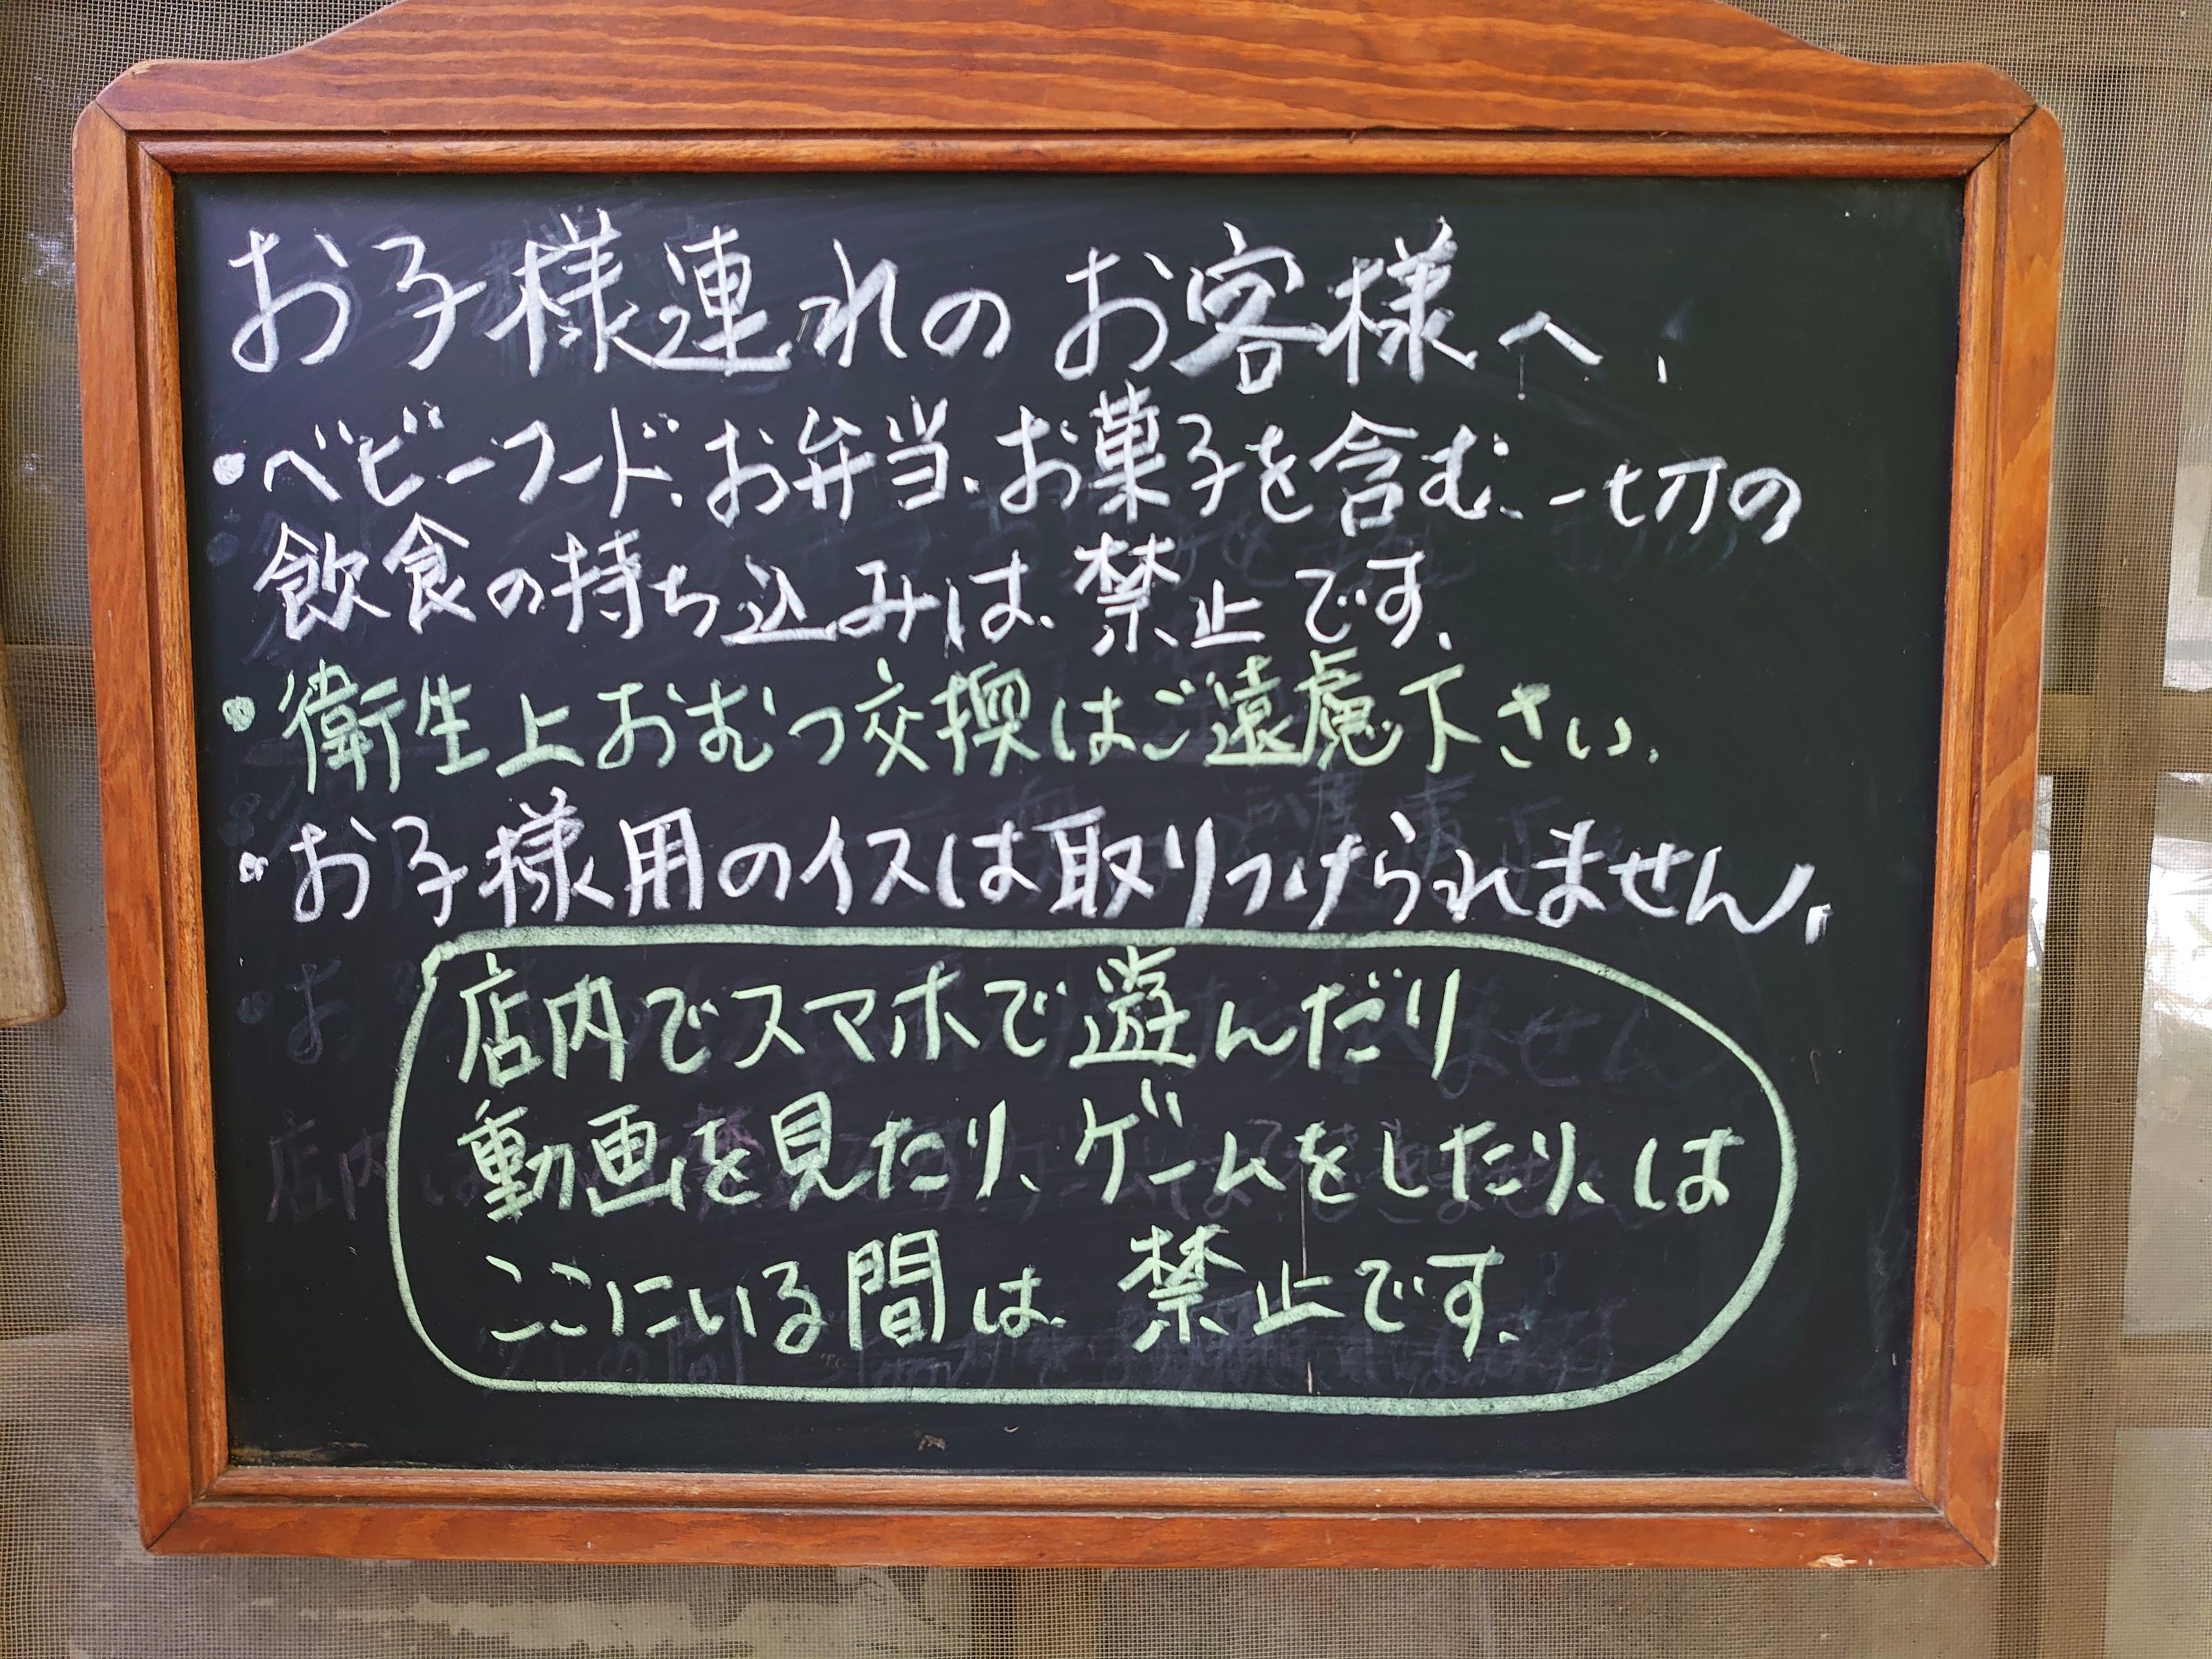 お子様連れのお客様へ.
・ベビーフード.お弁当.お菓子を含む、一切の
飲食の持ち込みは.禁止です.
・衛生上おむつ交換はご遠慮下さい.
・お子様用のイスは取りつけられません.
店内でスマホで遊んだり
動画を見たり、ゲームをしたり、は
ここにいる間は.禁止です.